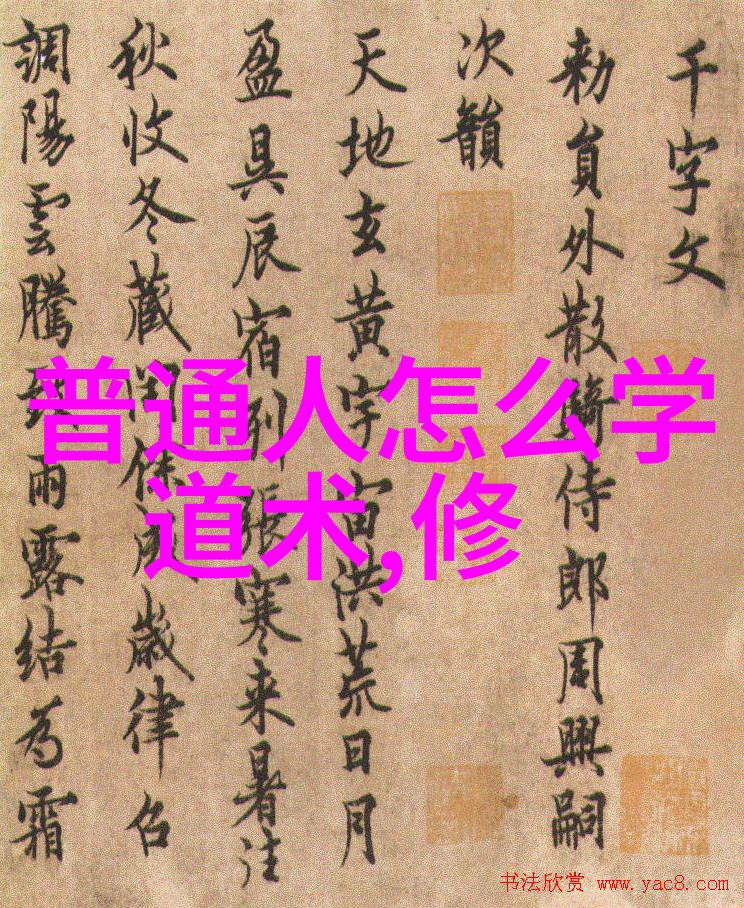 千字文
勑員外散騎侍郎周興嗣
次韻
天地玄黄宇宙洪荒日月
盈昃辰宿列張寒来暑往
秋收冬藏閏餘成歲律召
調陽雲騰致雨露結為霜
普通人怎么学
道术,修
书法欣赏 www.yac8.com